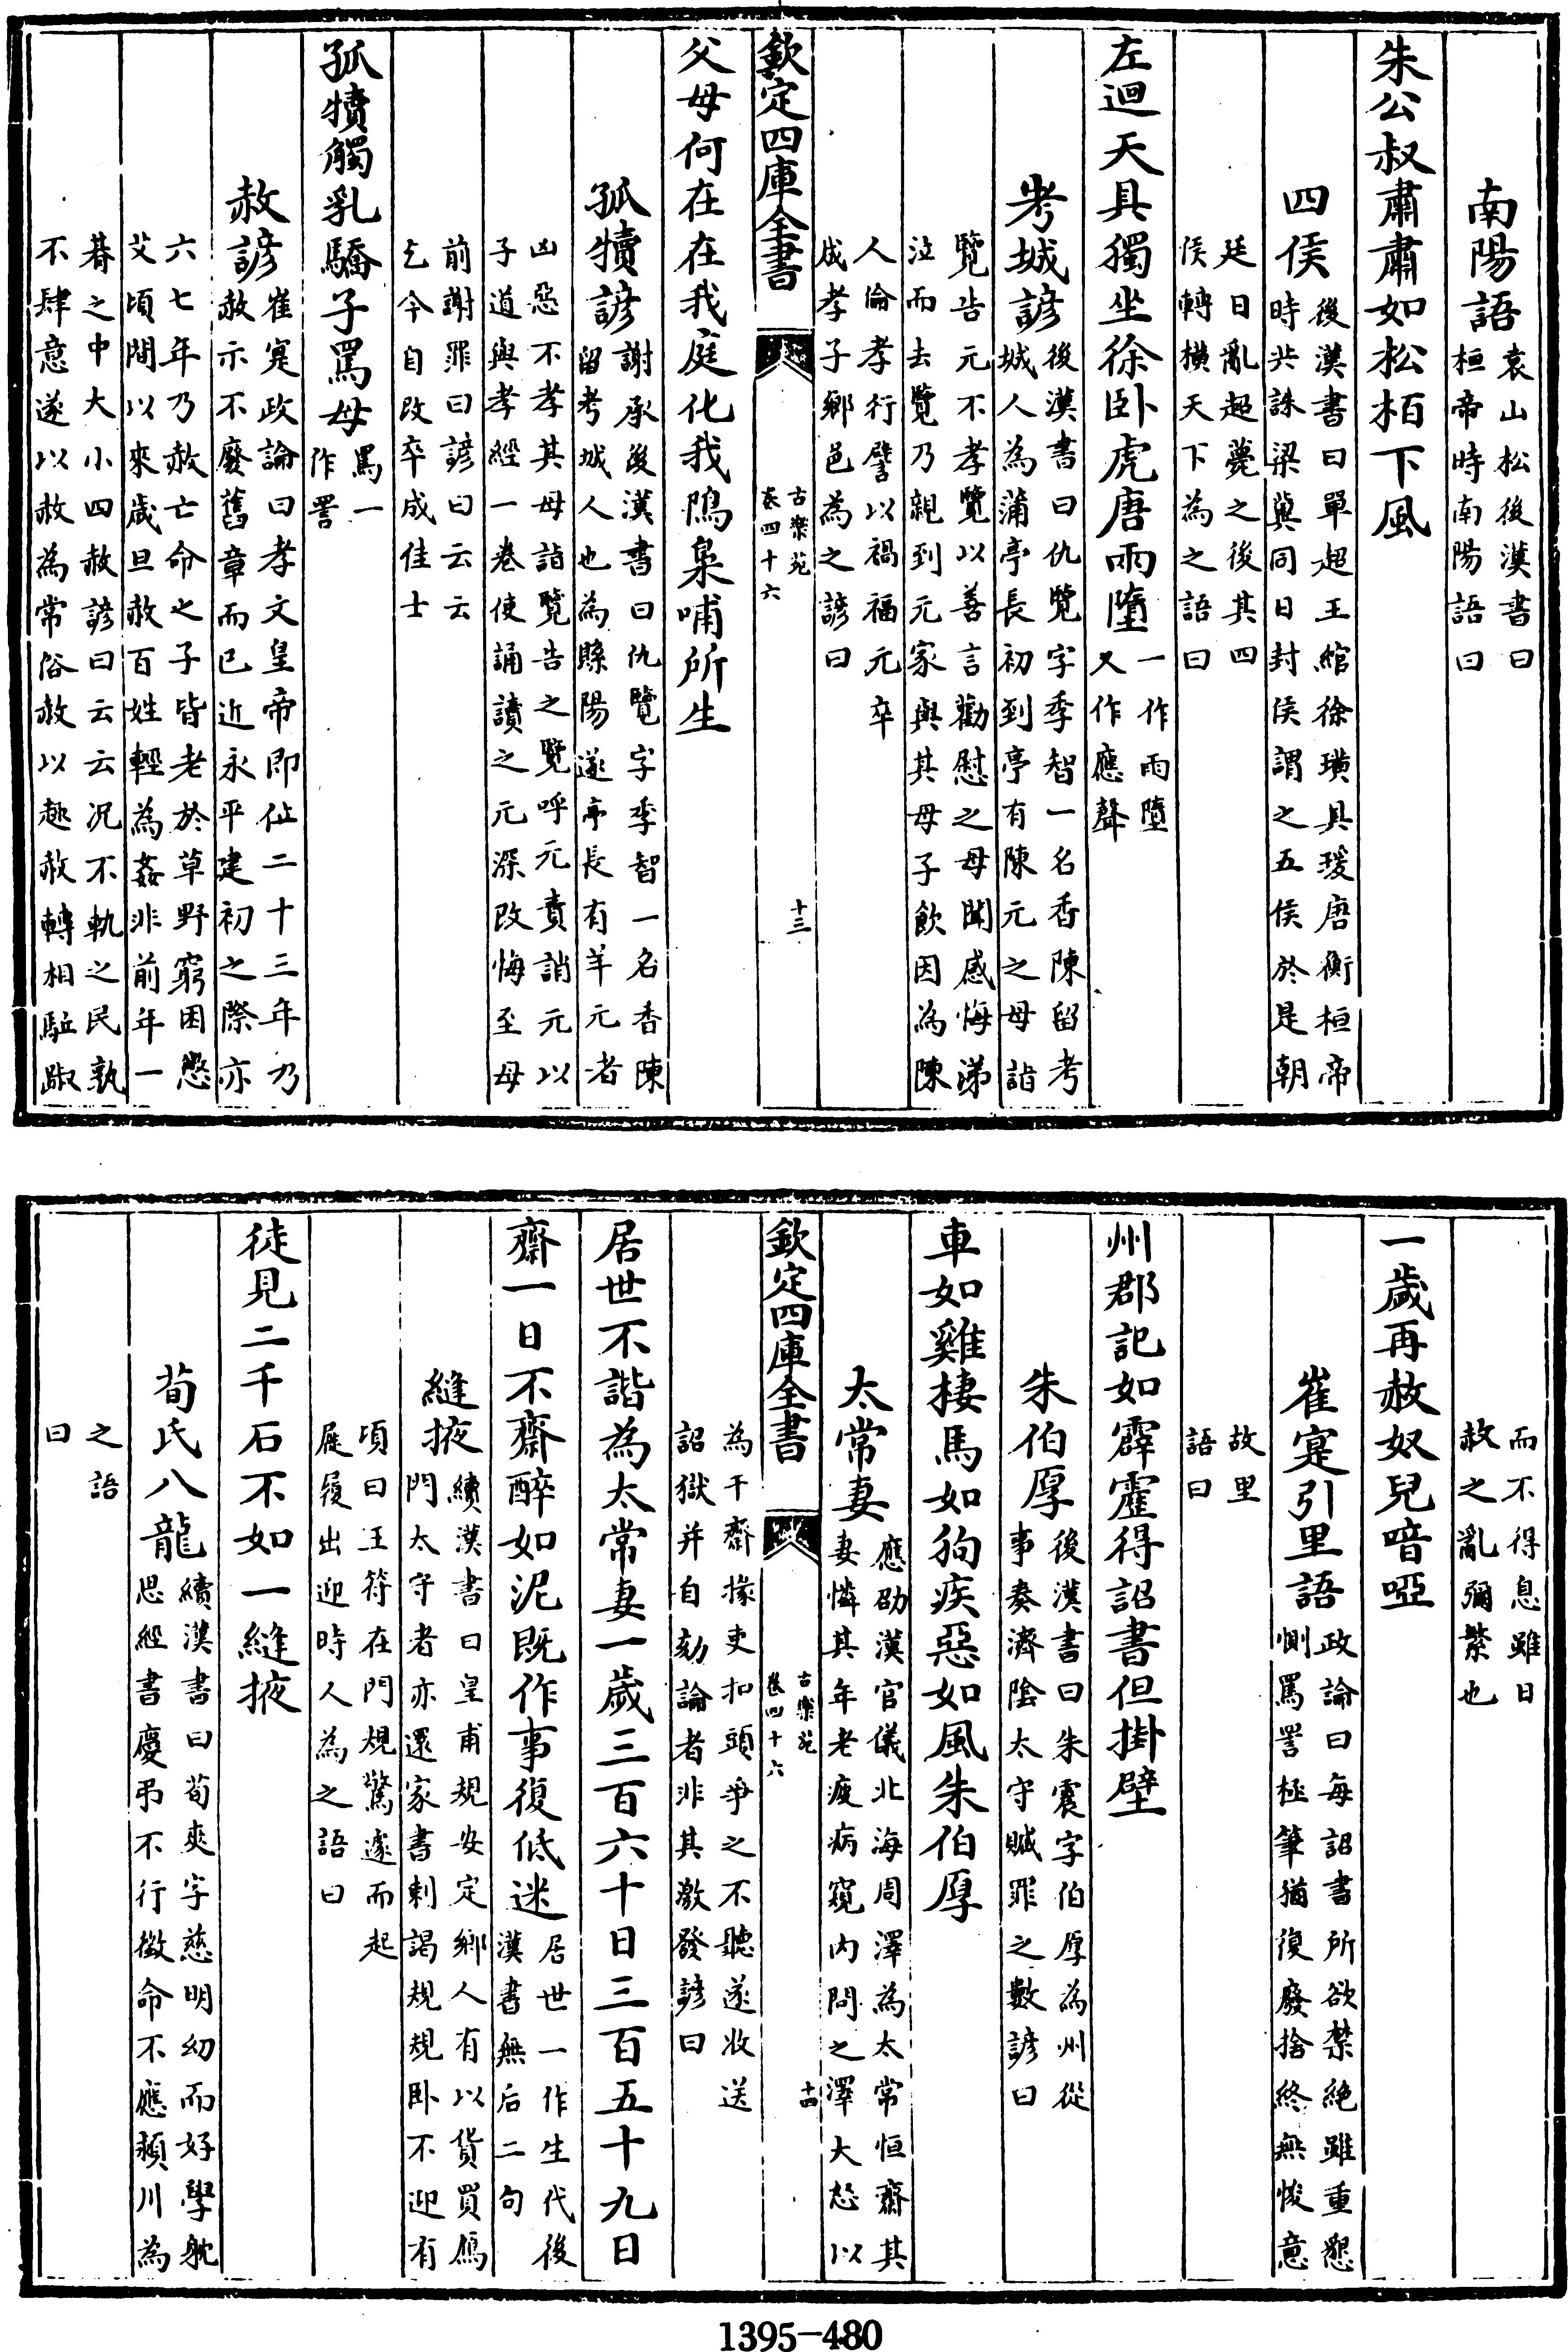 南陽語袁山松後漢書曰桓帝時南陽語曰
朱公叔肅肅如松栢下風
四侯後漢書曰單超王綰徐璜具瑗唐衡桓帝時共誅梁冀同日封侯謂之五侯於是朝
廷日亂超薨之後其四侯轉橫天下為之語曰
左迴天具獨坐徐卧虎唐雨墮一作雨墮又作應聲
考城諺後漢書曰仇覽字季智一名香陳留考城人為蒲亭長初到亭有陳元之母詣
覽告元不孝覽以善言勸慰之母聞感悔涕泣而去覽乃親到元家與其母子飲因為陳
人倫孝行譬以禍福元卒成孝子鄉邑為之諺曰
欽定四庫全書
古樂苑
卷四十六
十三
父母何在在我庭化我鳲梟哺所生
孤犢諺謝承後漢書曰仇覽字季智一名香陳留考城人也為縣陽遂亭長有羊元者
凶惡不孝其母詣覽告之覽呼元責誚元以子道與孝經一卷使誦讀之元深改悔至母
前謝罪曰諺曰云云乞今自改卒成佳士
孤犢觸乳驕子罵母罵一作詈
赦諺崔寔政論曰孝文皇帝即位二十三年乃赦示不廢舊章而已近永平建初之際亦
六七年乃赦亡命之子皆老於草野窮困懲艾頃間以來歲旦赦百姓輕為姦非前年一
朞之中大小四赦諺曰云云况不軌之民孰不肆意遂以赦為常俗赦以趣赦轉相駈踧
而不得息雖日赦之亂彌繁也
一歲再赦奴兒喑啞
崔寔引里語政論曰每詔書所欲禁絕雖重懇惻罵詈極筆猶復廢捨終無悛意
故里語曰
州郡記如霹靂得詔書但掛壁
朱伯厚後漢書曰朱震字伯厚為州從事奏濟陰太守贓罪之數諺曰
車如雞棲馬如狗疾惡如風朱伯厚
太常妻應劭漢官儀北海周澤為太常恒齋其妻憐其年老疲病窺內問之澤大怒以
欽定四庫全書
古樂苑
卷四十六
十四
為干齋掾吏扣頭爭之不聽遂收送詔獄并自劾論者非其激發諺曰
居世不諧為太常妻一歲三百六十日三百五十九日
齋一日不齋醉如泥既作事復低迷居世一作生代後漢書無后二句
縫掖續漢書曰皇甫規安定鄉人有以貨買鴈門太守者亦還家書刺謁規規卧不迎有
頃曰王符在門規驚遽而起屣履出迎時人為之語曰
徒見二千石不如一縫掖
荀氏八龍續漢書曰荀爽字慈明幼而好學躭思經書慶弔不行徵命不應潁川為
之語曰
1395-480